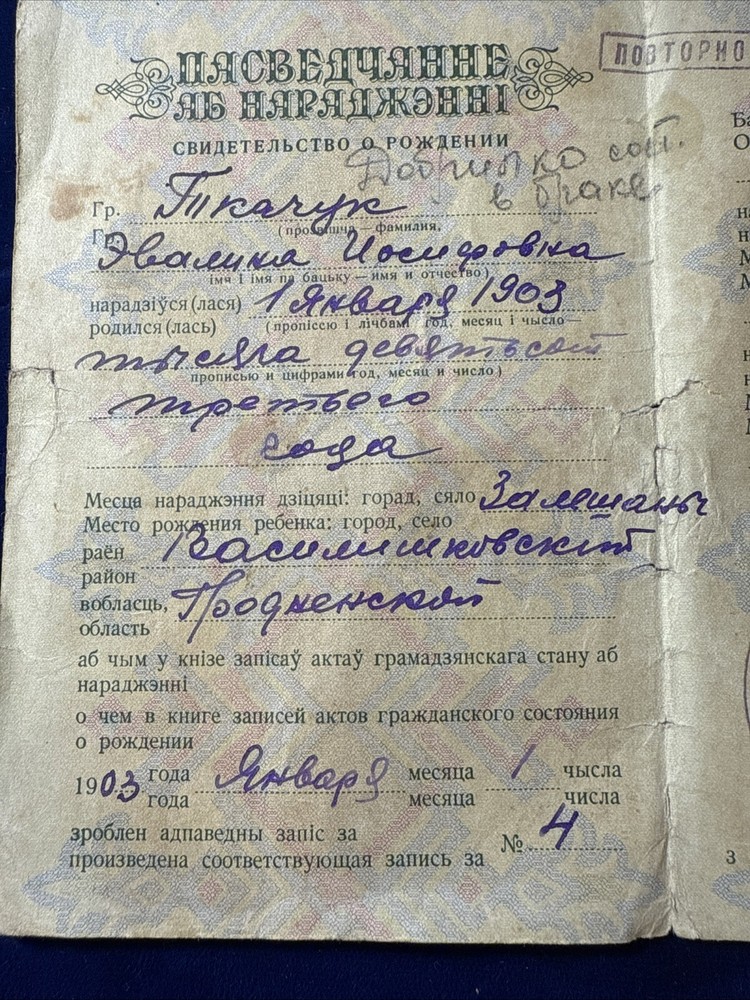 ПАСВЕДЧАННЕ
АБ НАРАДЖЭННІ
ПОВТОРНО
СВИДЕТЕЛЬСТВО О РОЖДЕНИИ
сост.
в браке
Гр. Ткачук
(прозвішча — фамилия,
Гр.
Эвалина Иосифовна
імя і імя па бацьку — имя и отчество)
нарадзіўся (лася) 1 Января 1903
родился (лась) (пропіссю і лічбамі год, месяц і чысло —
тысяча девятьсот
прописью и цифрами год, месяц и число)
третьего
года
Месца нараджэння дзіцяці: горад, сяло
Место рождения ребенка: город, село
раён Василишковский
район
вобласць, Гродненской
область
аб чым у кнізе запісаў актаў грамадзянскага стану аб
нараджэнні
о чем в книге записей актов гражданского состояния
о рождении
1903 года Января месяца 1 чысла
года месяца числа
зроблен адпаведны запіс за
№ 4
произведена соответствующая запись за